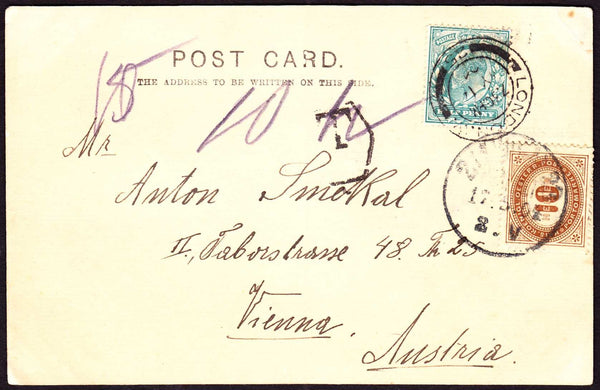 POST CARD.
THE ADDRESS TO BE WRITTEN ON THIS SIDE.
18
10 h
L
LONDON
10
Mr
Anton Smekal
II, Taborstrasse 48. Th 25
Vienna.
Austria.